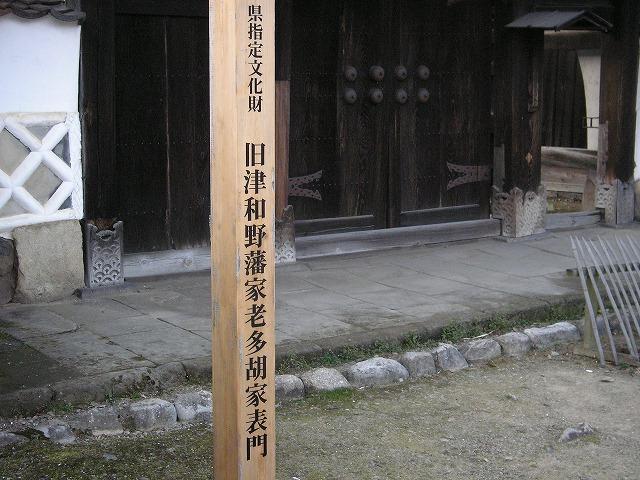 県指定文化財
旧津和野藩家老多胡家表門